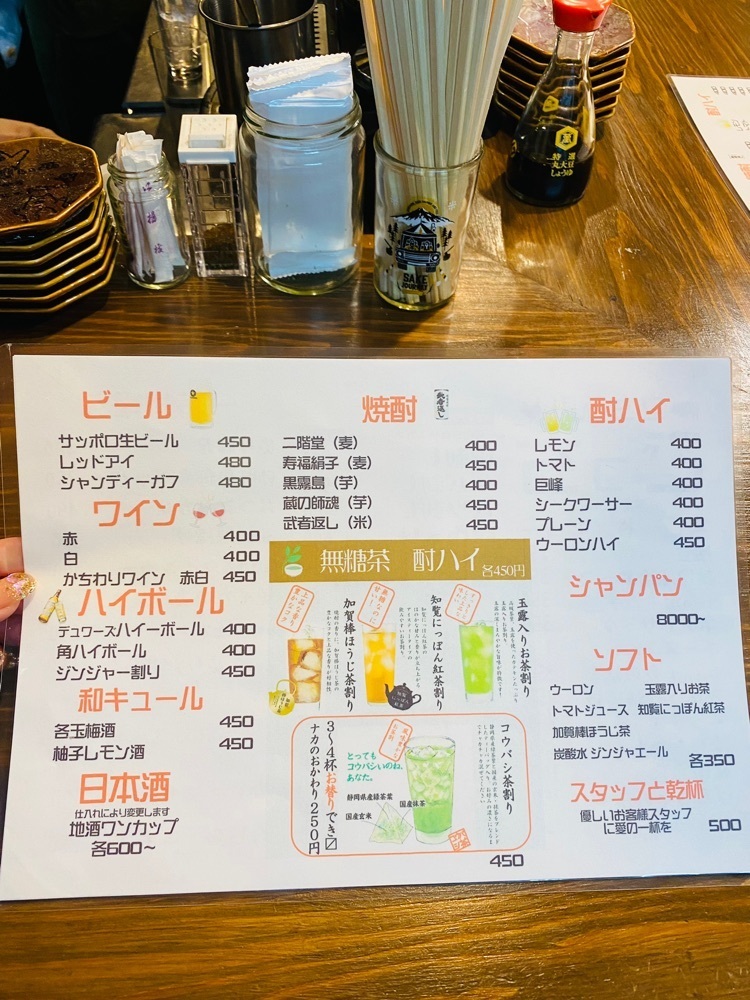 特選
丸大豆
しょうゆ
SAKE
ビール
サッポロ生ビール 450
レッドアイ 480
シャンディーガフ 480
ワイン
赤 400
白 400
かちわりワイン 赤白 450
ハイボール
デュワーズハイボール 400
角ハイボール 400
ジンジャー割り 450
和キュール
各玉梅酒 450
柚子レモン酒 450
日本酒
仕入れにより変更します
地酒ワンカップ
各600～
焼酎
二階堂（麦） 400
寿福絹子（麦） 450
黒霧島（芋） 400
蔵の師魂（芋） 450
武者返し（米） 450
無糖茶 酎ハイ 各450円
玉露入りお茶割り
知覧にっぽん紅茶割り
加賀棒ほうじ茶割り
上品な香り
豊かなコク
コウバシ茶割り
とっても
コウバシいのね、
あなた。
静岡県産緑茶葉
国産抹茶
国産玄米
3～4杯お替りでき〼
ナカのおかわり250円
450
酎ハイ
レモン 400
トマト 400
巨峰 400
シークワーサー 400
プレーン 400
ウーロンハイ 450
シャンパン
8000~
ソフト
ウーロン 玉露入りお茶
トマトジュース 知覧にっぽん紅茶
加賀棒ほうじ茶
炭酸水 ジンジャエール 各350
スタッフと乾杯
優しいお客様スタッフ
に愛の一杯を 500